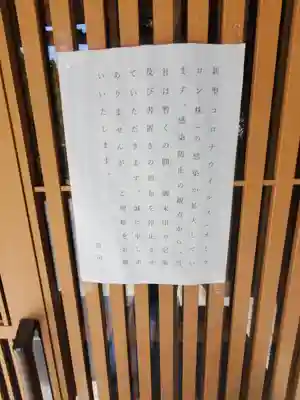 新型コロナウイルスオミク
ロン株への感染が拡大してい
ます。感染防止の観点から、当
日は暫くの間、御朱印の記帳
及び書置きの頒布を停止させ
ていただきます。誠に申し訳
ありませんが、ご理解をお願
いいたします。